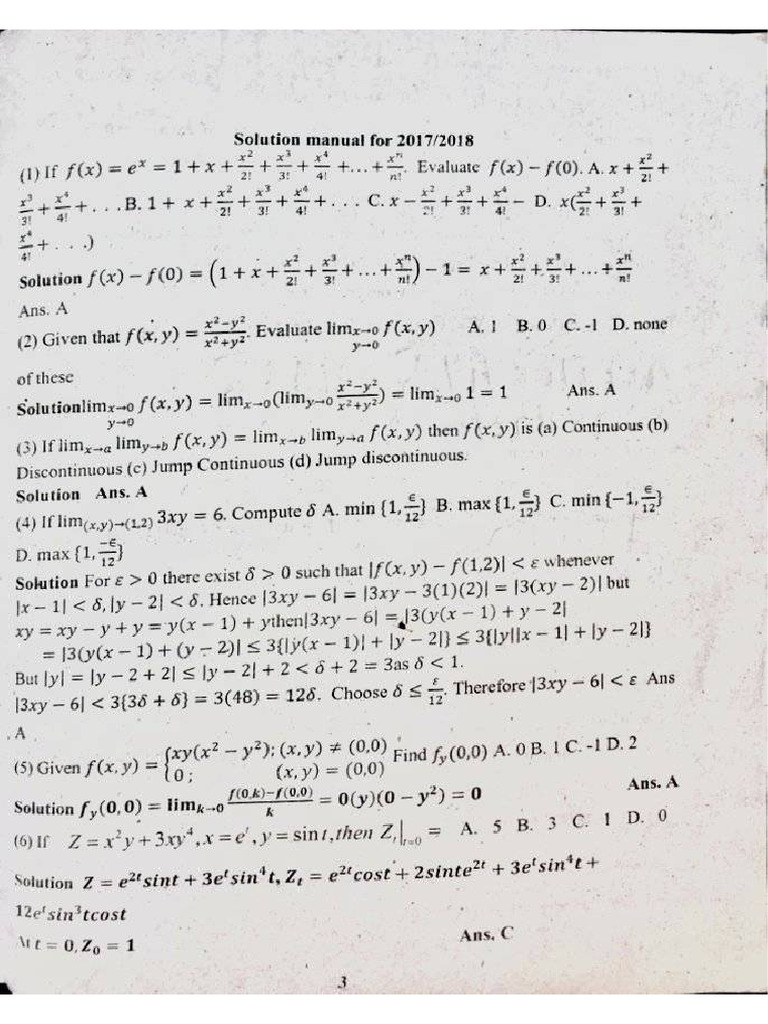 Solution manual for 2017/2018
(1) If f(x) = e^x = 1 + x + x^2/2! + x^3/3! + x^4/4! +…+ x^n/n!. Evaluate f(x) − f(0). A. x + x^2/2! +
x^3/3! + x^4/4! + . . .B. 1 + x + x^2/2! + x^3/3! + x^4/4! + . . . C. x − x^2/2! + x^3/3! + x^4/4! − D. x(x^2/2! + x^3/3! +
x^4/4! + . . .)
Solution f(x) − f(0) = (1 + x + x^2/2! + x^3/3! + … + x^n/n!) − 1 = x + x^2/2! + x^3/3! + … + x^n/n!
Ans. A
(2) Given that f(x, y) = (x^2−y^2)/(x^2+y^2). Evaluate lim_{x→0, y→0} f(x, y) A. 1 B. 0 C. -1 D. none
of these
Solution lim_{x→0, y→0} f(x, y) = lim_{x→0}(lim_{y→0} (x^2−y^2)/(x^2+y^2)) = lim_{x→0} 1 = 1 Ans. A
(3) If lim_{x→a} lim_{y→b} f(x, y) = lim_{x→b} lim_{y→a} f(x, y) then f(x, y) is (a) Continuous (b)
Discontinuous (c) Jump Continuous (d) Jump discontinuous.
Solution Ans. A
(4) If lim_{(x,y)→(1,2)} 3xy = 6. Compute δ A. min {1, ϵ/12} B. max {1, ϵ/12} C. min {−1, ϵ/12}
D. max {1, −ϵ/12}
Solution For ε > 0 there exist δ > 0 such that |f(x, y) − f(1,2)| < ε whenever
|x − 1| < δ, |y − 2| < δ. Hence |3xy − 6| = |3xy − 3(1)(2)| = |3(xy − 2)| but
xy = xy − y + y = y(x − 1) + ythen|3xy − 6| = |3(y(x − 1) + y − 2|
= |3(y(x − 1) + (y − 2)| ≤ 3{|y(x − 1)| + |y − 2|} ≤ 3{|y||x − 1| + |y − 2|}
But |y| = |y − 2 + 2| ≤ |y − 2| + 2 < δ + 2 = 3as δ < 1.
|3xy − 6| < 3{3δ + δ} = 3(48) = 12δ. Choose δ ≤ ε/12. Therefore |3xy − 6| < ε Ans
. A
(5) Given f(x, y) = {xy(x^2 − y^2); (x, y) ≠ (0,0) Find f_y(0,0) A. 0 B. 1 C. -1 D. 2
0 ; (x, y) = (0,0)
Solution f_y(0, 0) = lim_{k→0} (f(0,k)−f(0,0))/k = 0(y)(0 − y^2) = 0 Ans. A
(6) If Z = x^2y + 3xy^4, x = e^t, y = sin t, then Z_t|_{t=0} = A. 5 B. 3 C. 1 D. 0
Solution Z = e^{2t}sint + 3e^t sin^4t, Z_t = e^{2t}cost + 2sinte^{2t} + 3e^t sin^4t +
12e^t sin^3tcost
At t = 0, Z_0 = 1 Ans. C
3